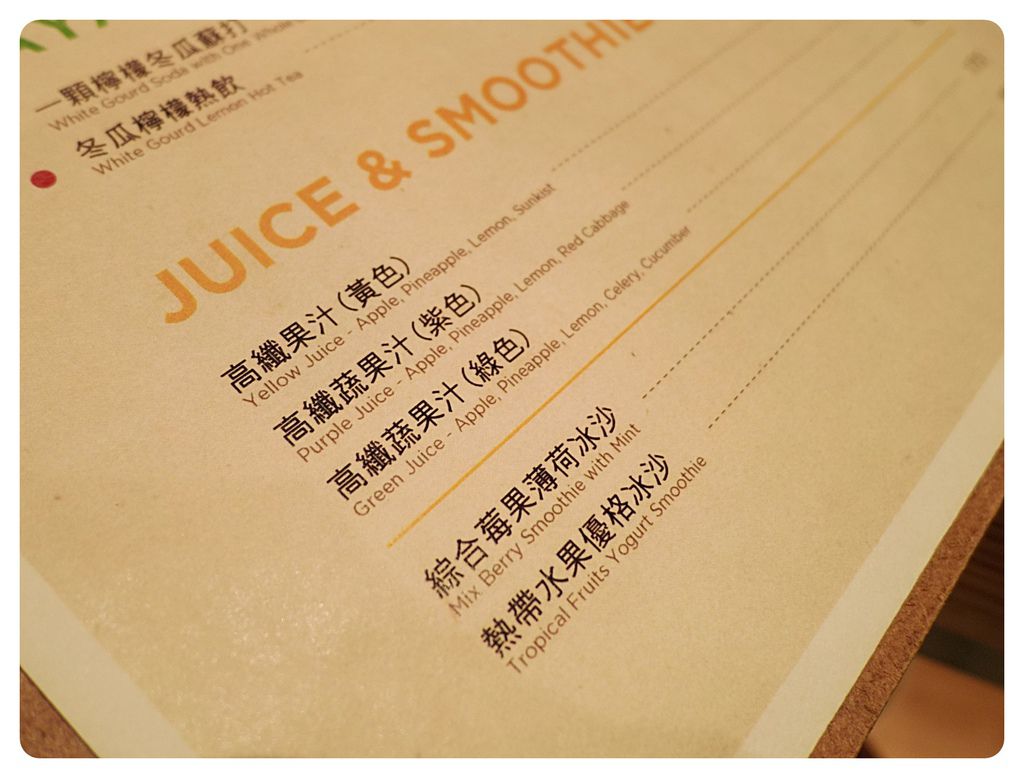 一顆檸檬冬瓜蘇打
White Gourd Soda with One Whole
冬瓜檸檬熱飲
White Gourd Lemon Hot Tea
JUICE & SMOOTHIE
高纖果汁(黃色)
Yellow Juice - Apple, Pineapple, Lemon, Sunkist
高纖蔬果汁(紫色)
Purple Juice - Apple, Pineapple, Lemon, Red Cabbage
高纖蔬果汁(綠色)
Green Juice - Apple, Pineapple, Lemon, Celery, Cucumber
綜合莓果薄荷冰沙
Mix Berry Smoothie with Mint
熱帶水果優格冰沙
Tropical Fruits Yogurt Smoothie